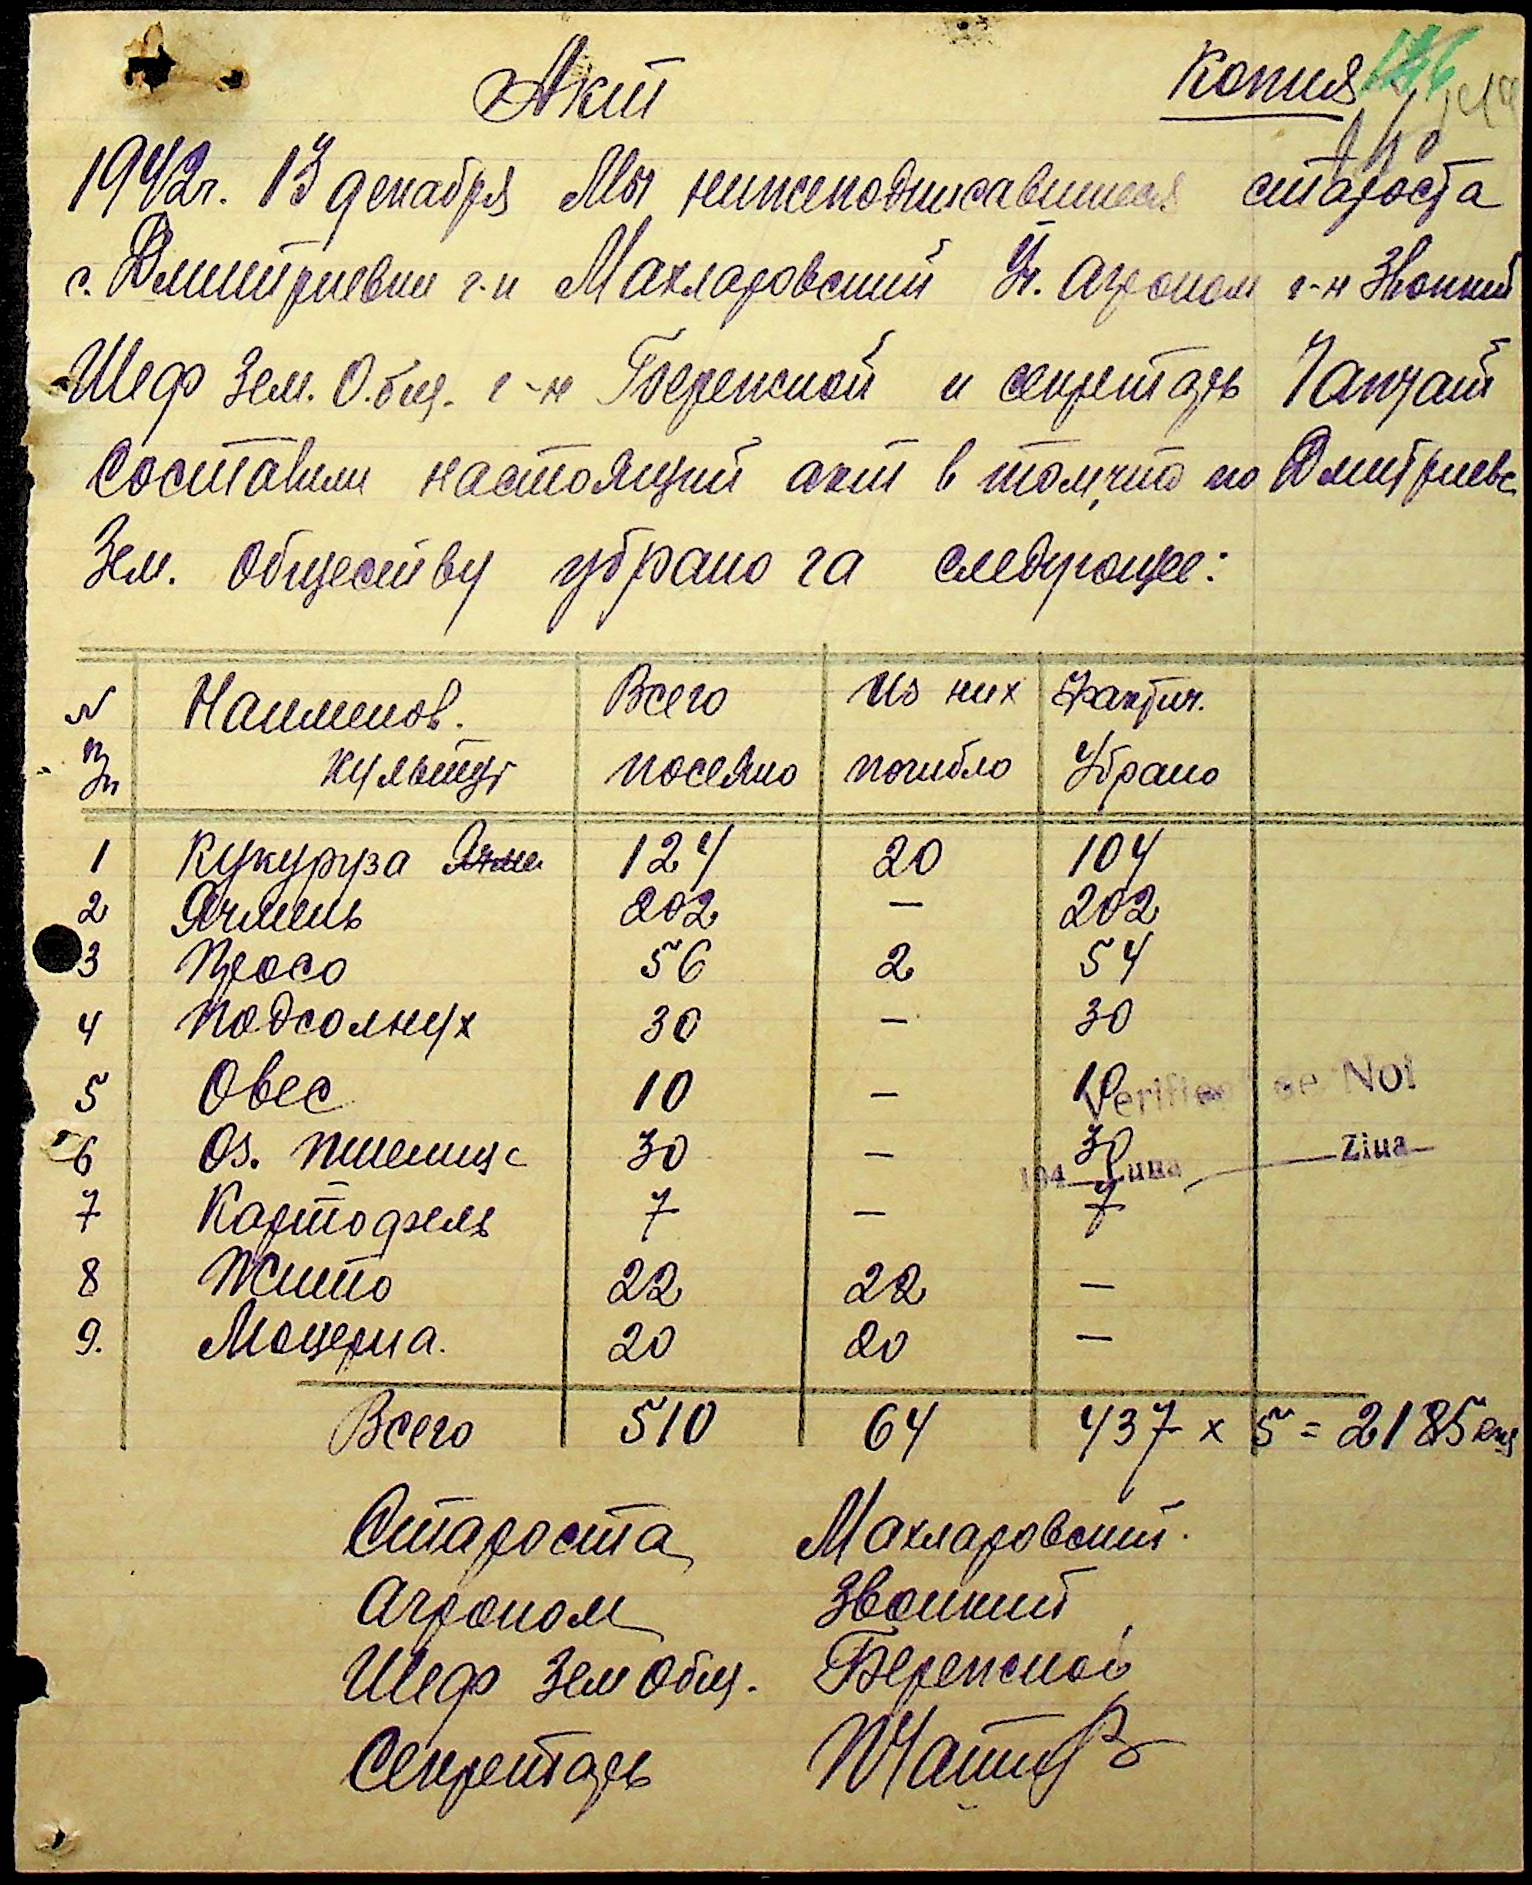 Акт
Копия 146
1942г. 13 декабря Мы нижеподписавшиеся староста
с. Дмитриевки г-н Махларовский Уч. агроном г-н Звонкий
Шеф Зем. Общ. г-н Бережной и секретарь
составили настоящий акт в том, что по Дмитриевс
Зем. Обществу убрано га следующее:
N п/п Наименов. культур Всего посеяно Из них погибло Фактич. Убрано
1 Кукуруза Ячме 124 20 104
2 Ячмень 202 – 202
3 Просо 56 2 54
4 Подсолнух 30 – 30
5 Овес 10 – 10
Verificat se Noi
6 Оз. пшениц 30 – 30
194 Luna Ziua
7 Картофель 7 – 7
8 Жито 22 22 –
9. Люцерна. 20 20 –
Всего 510 64 437 х 5 = 2185
Староста Махларовский.
Агроном Звонкий
Шеф Зем Общ. Бережной
Секретарь